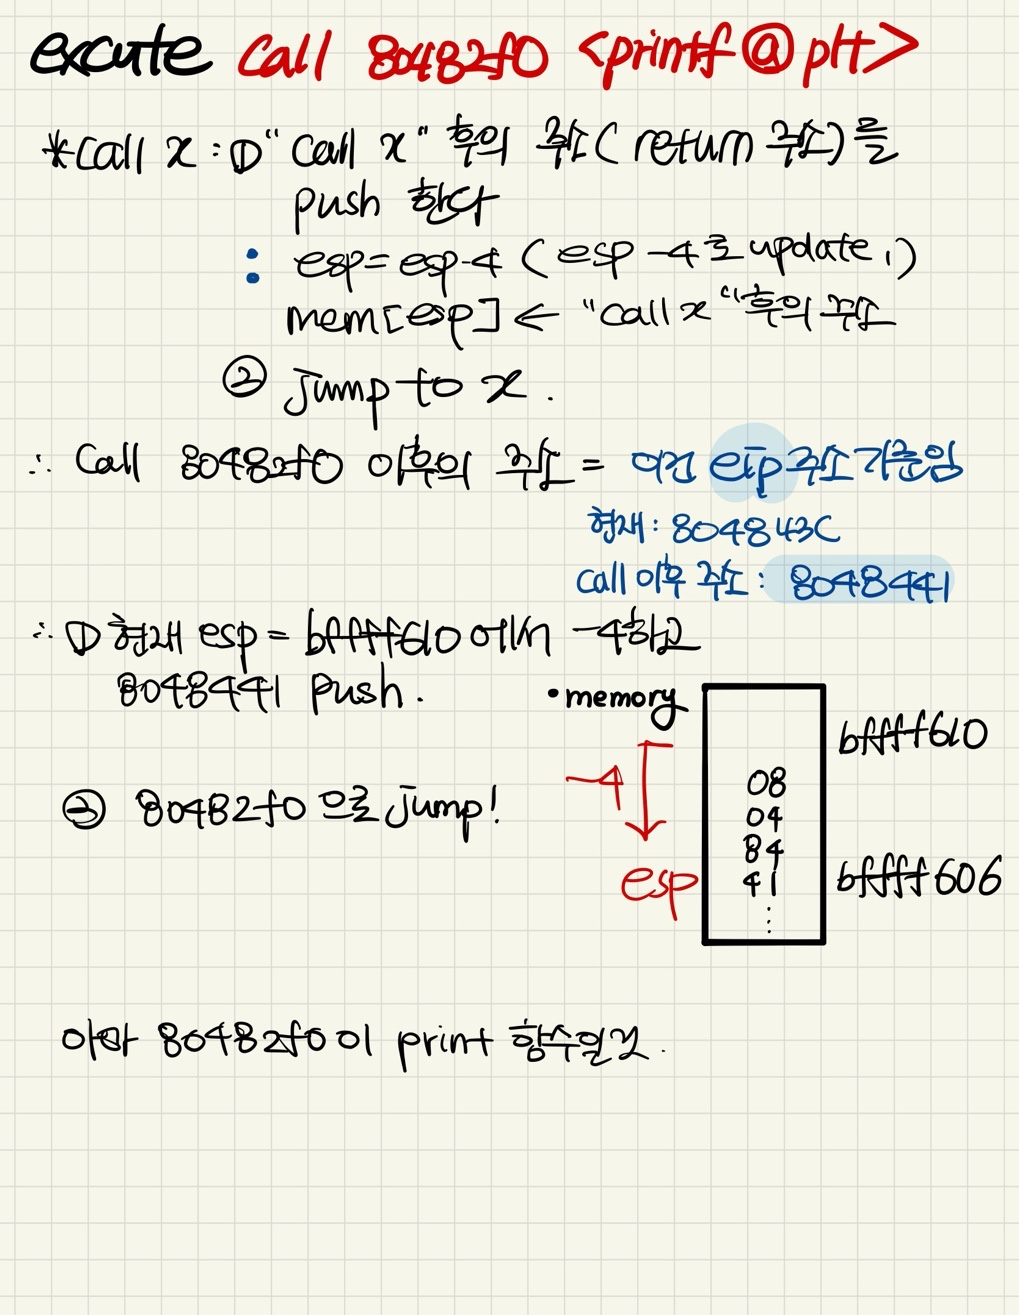 excute call 80482f0 <printf@plt>
*call x : ① "call x" 후의 주소( return 주소)를
push 한다
: esp = esp-4 ( esp -4로 update, )
mem[esp] ← "call x" 후의 주소
② jump to x .
∴ call 80482f0 이후의 주소 = 이건 eip 주소 기준임
현재 : 804843C
call 이후 주소 : 8048441
∴ ① 현재 esp = bffff610 에서 -4하고
8048441 push .
• memory
bffff610
-4
08
04
② 80482f0 으로 jump!
84
esp 41 bffff606
⋮
아마 80482f0 이 print 함수일것 .